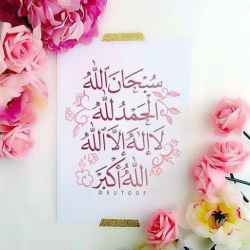 سُبْحَانَ اللّٰه
الْحَمْدُ لِلّٰه
لَا إِلٰهَ إِلَّا اللّٰه
اللّٰهُ أَكْبَرُ